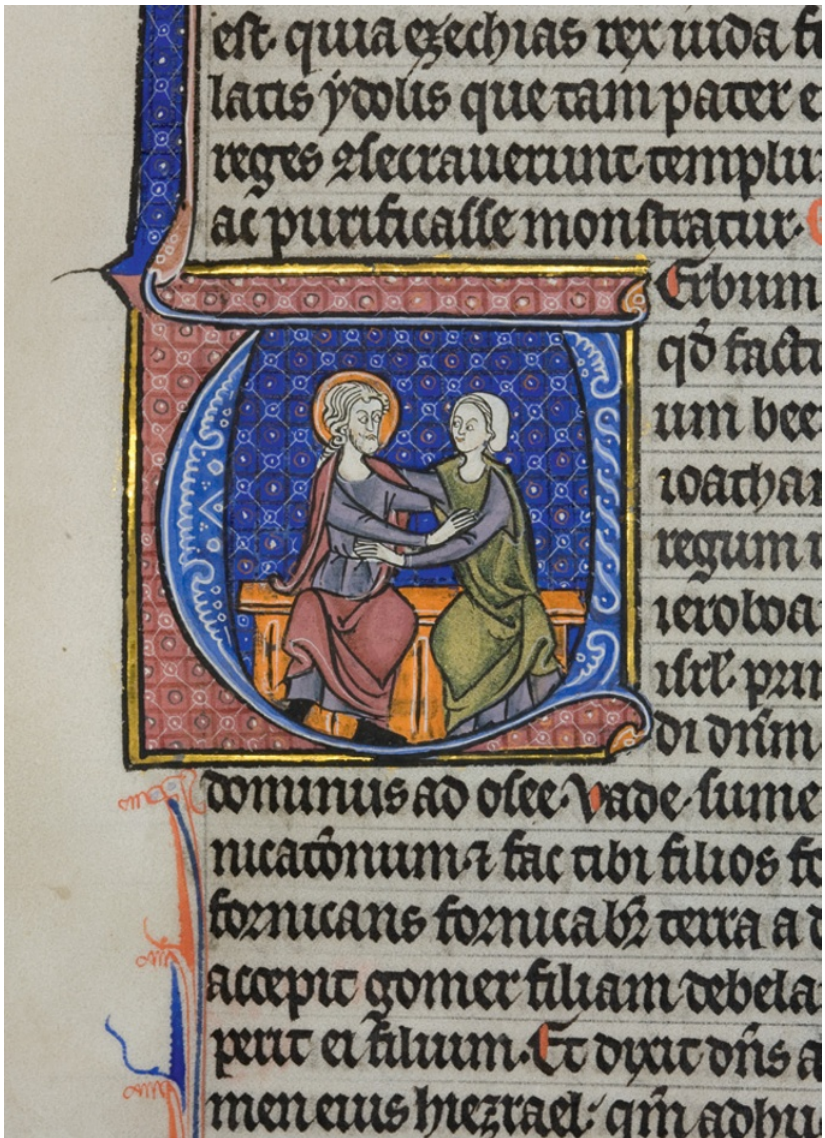 est. quia ezechias rex iuda
latis ydolis que tam pater
reges ꝯsecrauerunt. templu
ac purificasse monstratur.
Erbum
qd̄ factu
um bee
ioathan
regum
ieroboa
isrl̄. prin
di dn̄m
dominus ad osee. Vade. sume
nicatōnum ⁊ fac tibi filios fo
fornicans fornicabit᷑ terra a d
accepit gomer filiam debela
perit ei filium. Et dixit dn̄s a
men eius hiezrael: qm̄ adhu